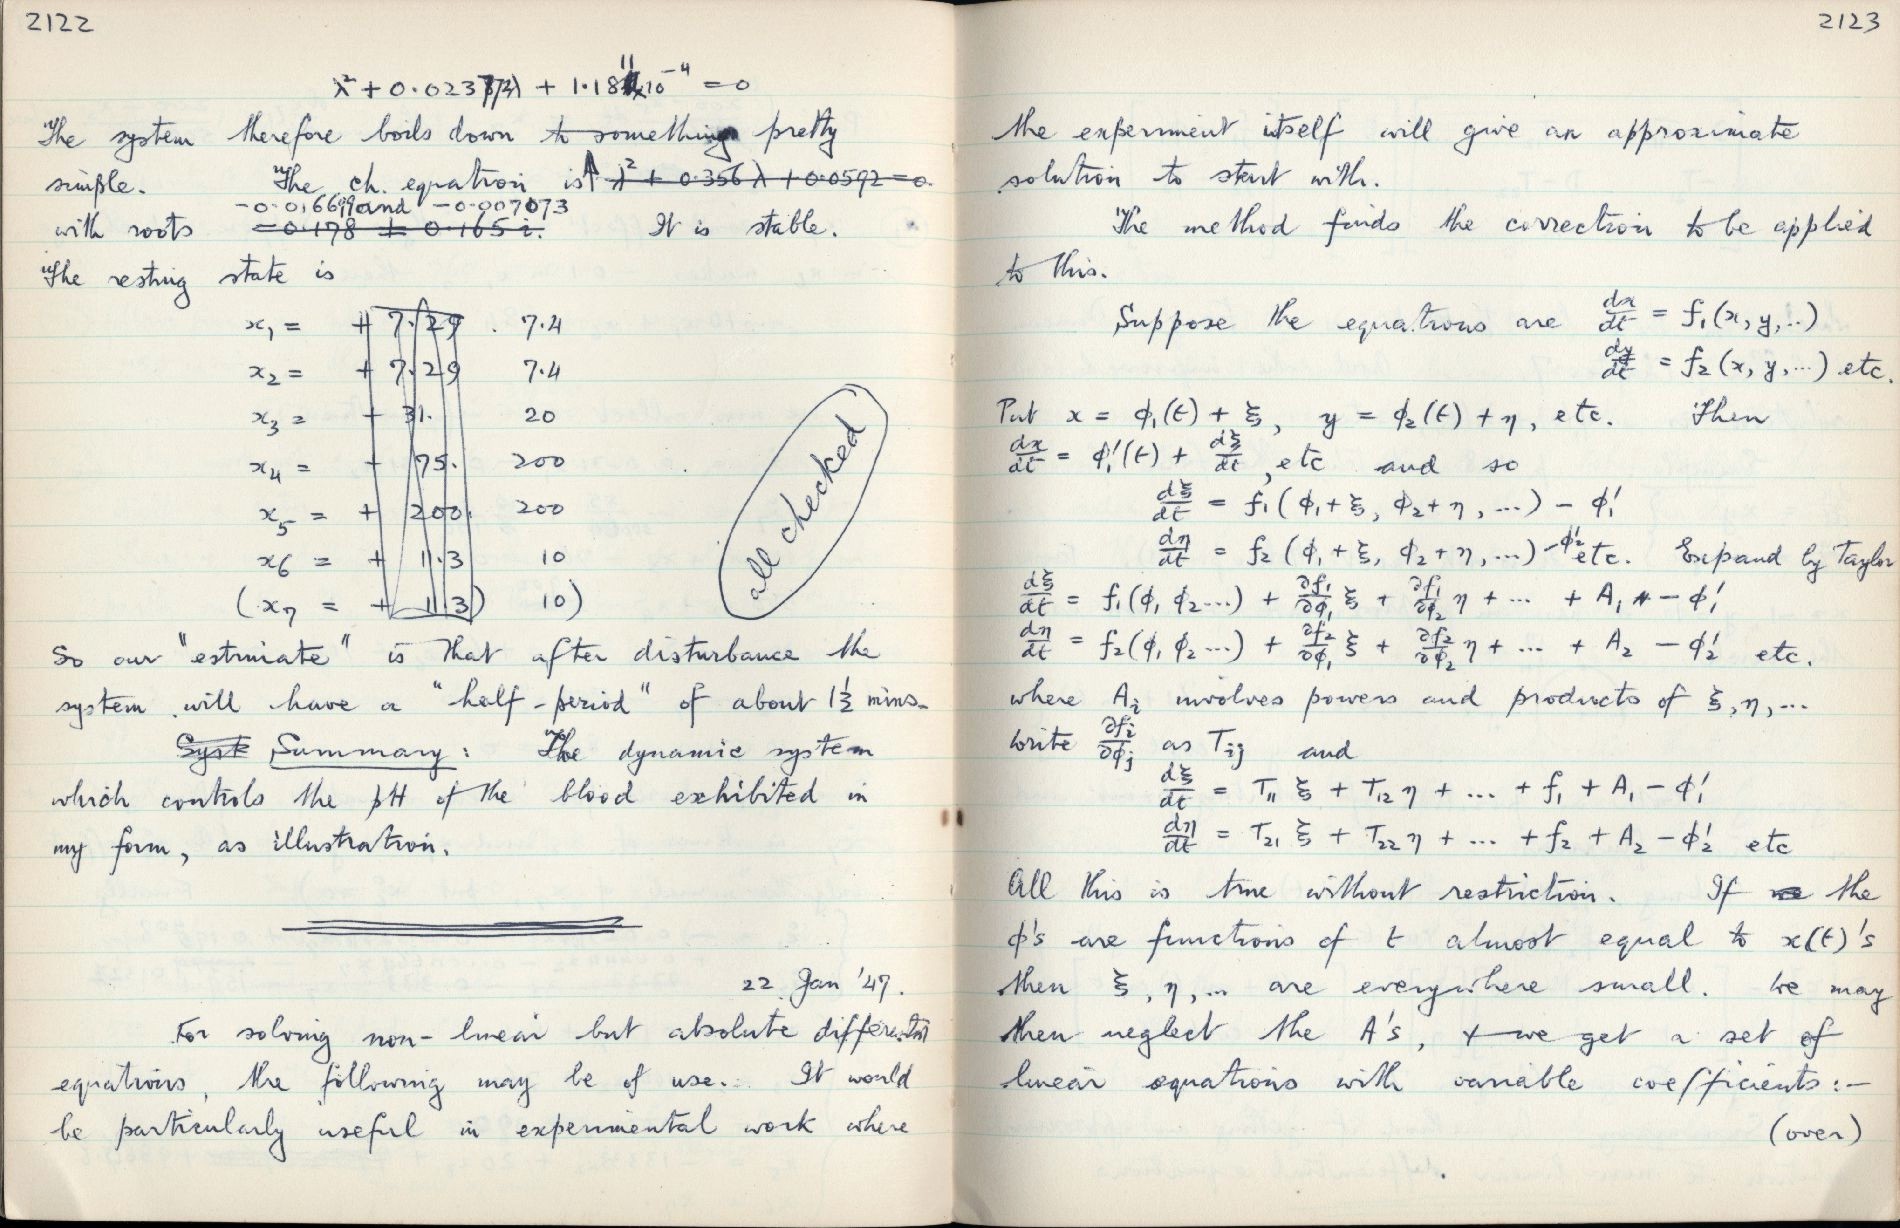 2122
λ² + 0.02373λ + 1.181 × 10⁻⁴ = 0
The system therefore boils down to something pretty
simple. The ch. equation is ↑ λ² + 0.356 λ + 0.0592 = 0.
-0.01669 and -0.007073
with roots -0.178 ± 0.165 i. It is stable.
The resting state is
x₁ = + 7.29 . 7.4
x₂ = + 7.29 7.4
x₃ = + 31. 20
x₄ = + 75. 200
x₅ = + 200. 200
x₆ = + 11.3 10
(x₇ = + 11.3) 10)
all checked
So our "estimate" is that after disturbance the
system will have a "half-period" of about 1½ mins.
Syst Summary: The dynamic system
which controls the pH of the blood exhibited in
my form, as illustration.
22 Jan '47.
For solving non-linear but absolute differential
equations, the following may be of use. It would
be particularly useful in experimental work where
2123
the experiment itself will give an approximate
solution to start with.
The method finds the correction to be applied
to this.
Suppose the equations are dx/dt = f₁(x, y, ..)
dy/dt = f₂(x, y, ...) etc.
Put x = ϕ₁(t) + ξ, y = ϕ₂(t) + η, etc. Then
dx/dt = ϕ₁'(t) + dξ/dt, etc and so
dξ/dt = f₁(ϕ₁ + ξ, ϕ₂ + η, ...) - ϕ₁'
dη/dt = f₂(ϕ₁ + ξ, ϕ₂ + η, ...) - ϕ₂' etc. Expand by Taylor
dξ/dt = f₁(ϕ₁ ϕ₂ ...) + ∂f₁/∂ϕ₁ ξ + ∂f₁/∂ϕ₂ η + ... + A₁ - ϕ₁'
dη/dt = f₂(ϕ₁ ϕ₂ ...) + ∂f₂/∂ϕ₁ ξ + ∂f₂/∂ϕ₂ η + ... + A₂ - ϕ₂' etc.
where Aᵢ involves powers and products of ξ, η, ...
Write ∂fᵢ/∂ϕⱼ as Tᵢⱼ and
dξ/dt = T₁₁ ξ + T₁₂ η + ... + f₁ + A₁ - ϕ₁'
dη/dt = T₂₁ ξ + T₂₂ η + ... + f₂ + A₂ - ϕ₂' etc
All this is true without restriction. If the
ϕ's are functions of t almost equal to x(t)'s
then ξ, η, ... are everywhere small. We may
then neglect the A's, + we get a set of
linear equations with variable coefficients:-
(over)